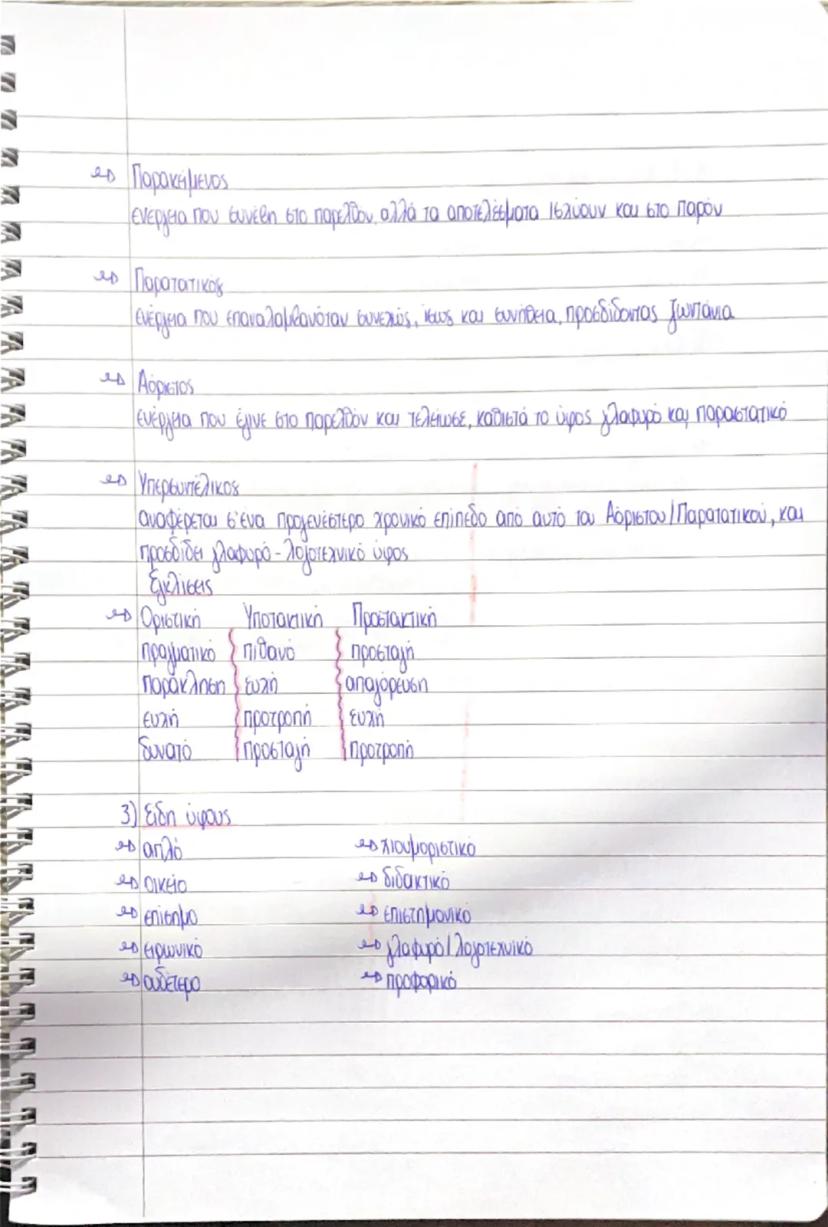 Παρακείμενος
ενέργεια που συνέβη στο παρελθον, αλλά τα αποτελέσματα ισχύουν και στο παρόν
Παρατατικός
ενέργεια που επαναλαμβανόταν συνεχώς, ίσως και συνήθεια, προσδίδοντας ζωντάνια
Αόριστος
ενέργεια που έγινε στο παρελθόν και τελείωσε, καθιστά το ύφος γλαφυρό και παραστατικό
Υπερσυντέλικος
αναφέρεται σ'ένα προγενέστερο χρονικό επίπεδο από αυτό του Αόριστου/Παρατατικού, και
προσδίδει γλαφυρό - λογοτεχνικό ύφος
Εγκλίσεις
Οριστική Υποτακτική Προστακτική
πραγματικό πιθανό προσταγή
παράκληση ευχή απαγόρευση
ευχή προτροπή ευχή
δυνατό προσταγή προτροπή
3) Είδη ύφους
απλό χιουμοριστικό
οικείο διδακτικό
επίσημο επιστημονικό
ειρωνικό γλαφυρό/λογοτεχνικό
ουδέτερο προφορικό